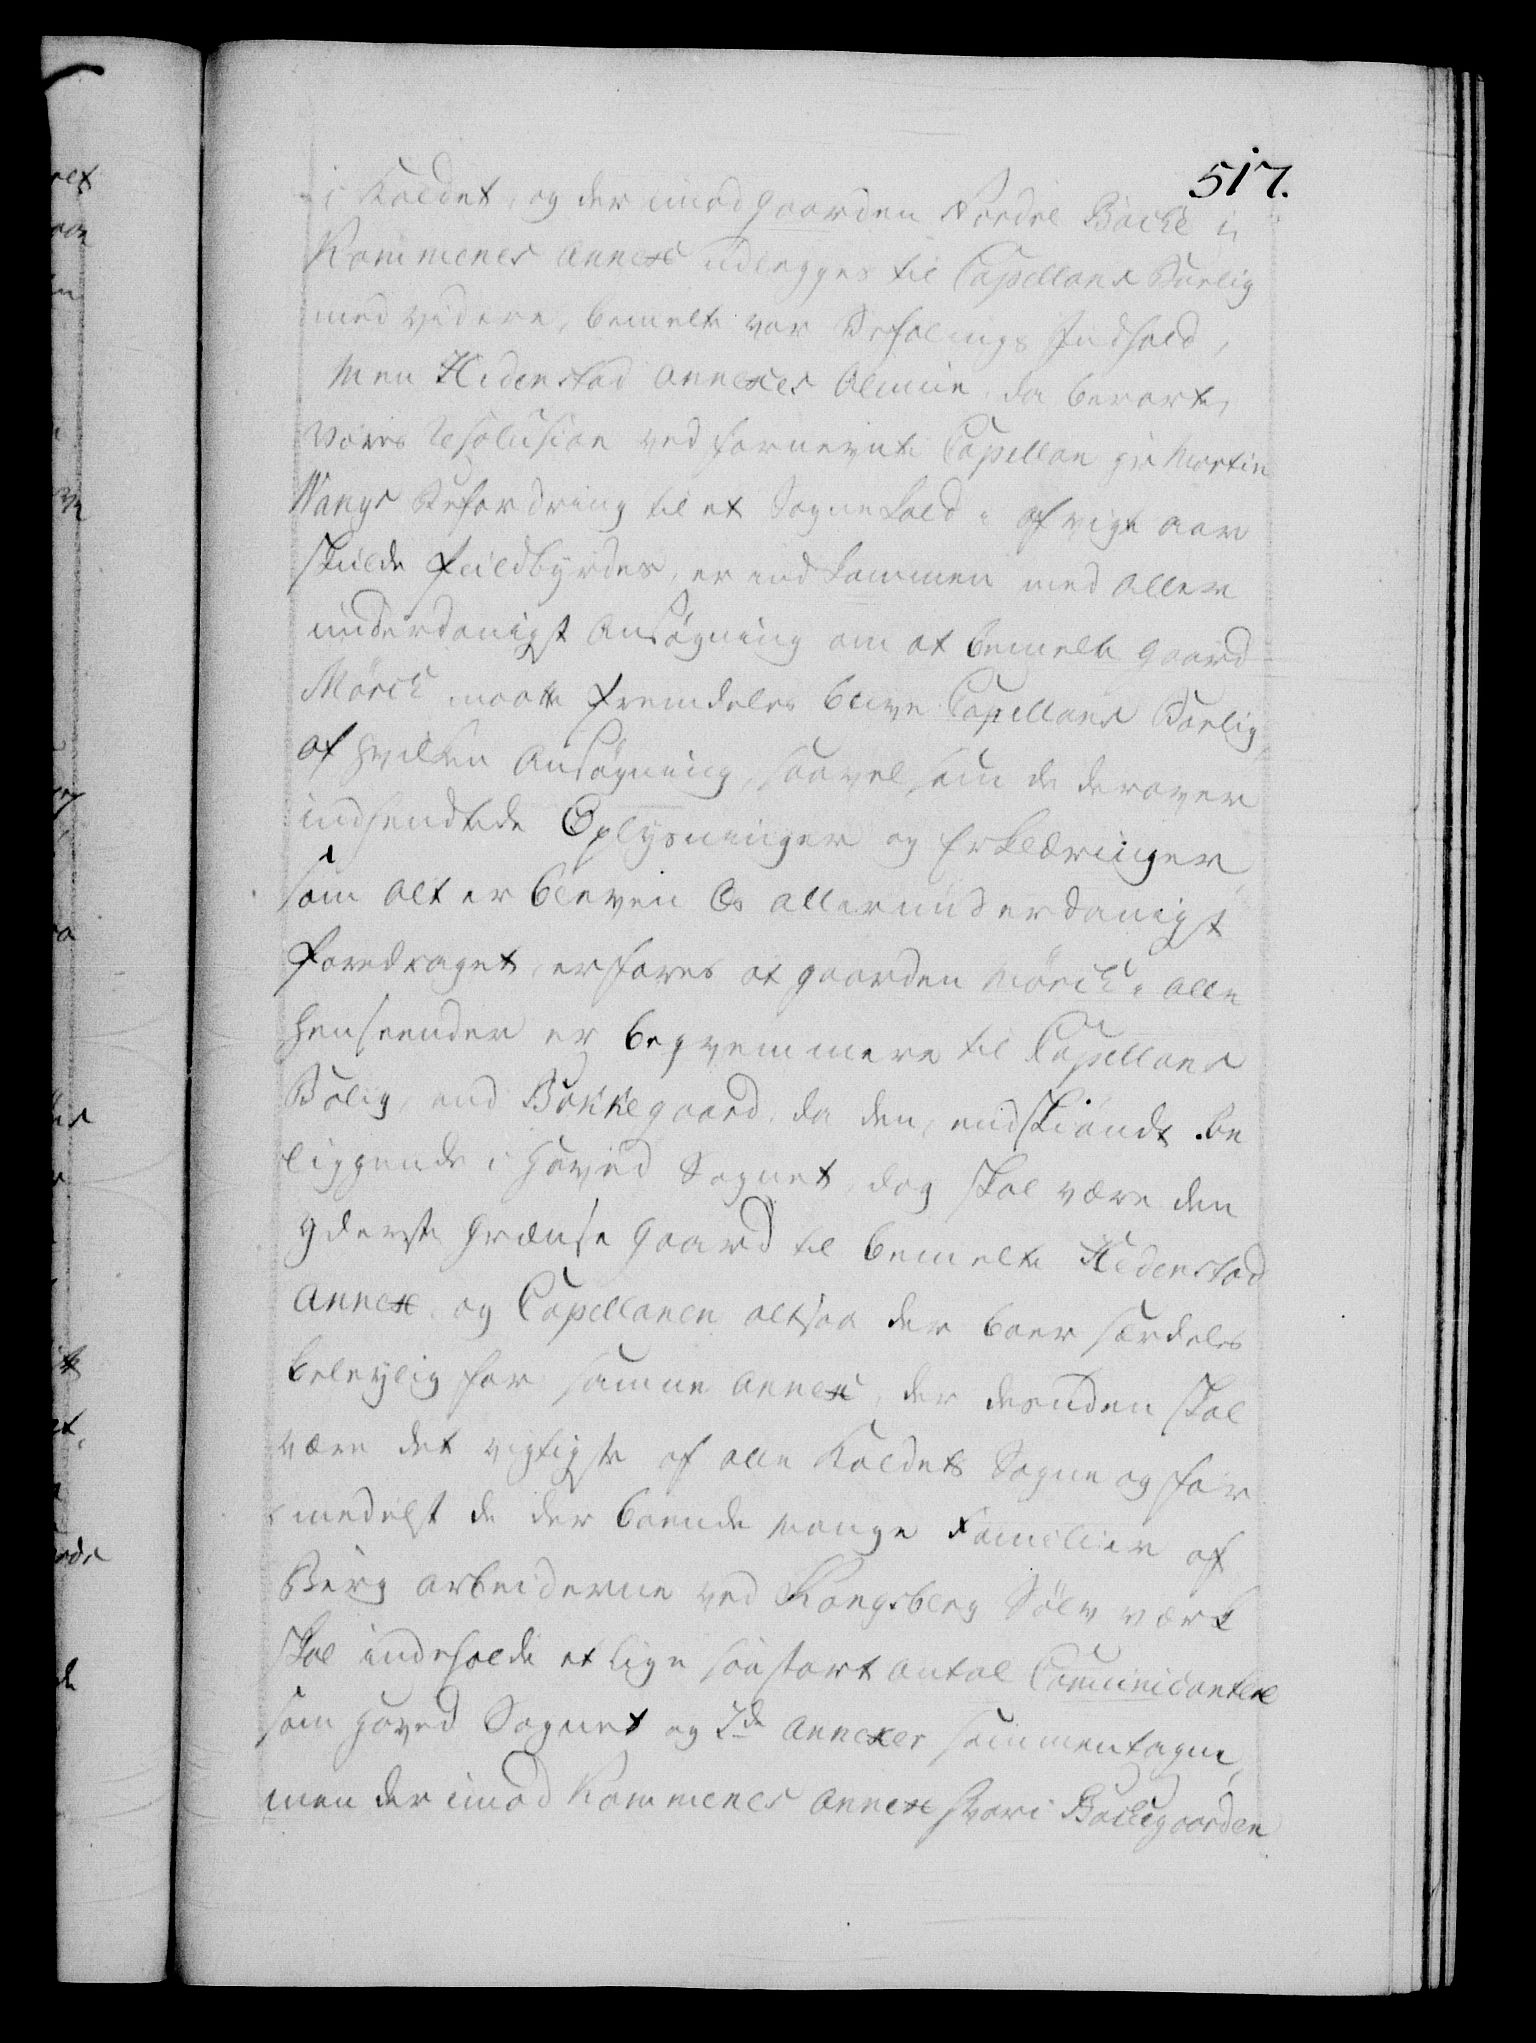 517.
i Kaldet, og der imod gaarden Nordre Backe i
Rommenes Annex udlægges til Capellans Boelig
med videre, bemelte vor Befalings Indhold,
Men Hedenstad Annexes Almue, da berørte
Vores Resolusion ved fornevnte Capellan Hr Morten
Wangs Befordring til et Sognekald i afvigte aar
skulde fuldbyrdes, er indkommen med aller
underdanigst Ansøgning om at bemelte gaard
Mörch maatte fremdeles blive Capellans Boelig,
af hvilken Ansøgning, saavelsom de derover
indhendtede Oplysninger og Erklæringer,
som alt er bleven Os allerunderdanigst
foredraget, erfares at gaarden Mörch i alle
henseender er beqvemmere til Capellans
Bolig, end Bakkegaard, da den, endskiöndt be
liggende i Hoved Sognet, dog skal være den
yderste Grændse Gaard til bemelte Hedenstad
Annex, og Capellanen altsaa der boer særdeles
beleylig for samme Annex, der desuden skal
være det vigtigste af alle Kaldets Sogne og for
medelst de der boende mange Familier af
Berg arbeiderne ved Kongsberg Sölv værk
skal indeholde et lige saa stort antal Communicantere
som Hoved Sognet og 2de Annexer sammentagne,
men derimod Rommenes Annex hvori Backegaarden